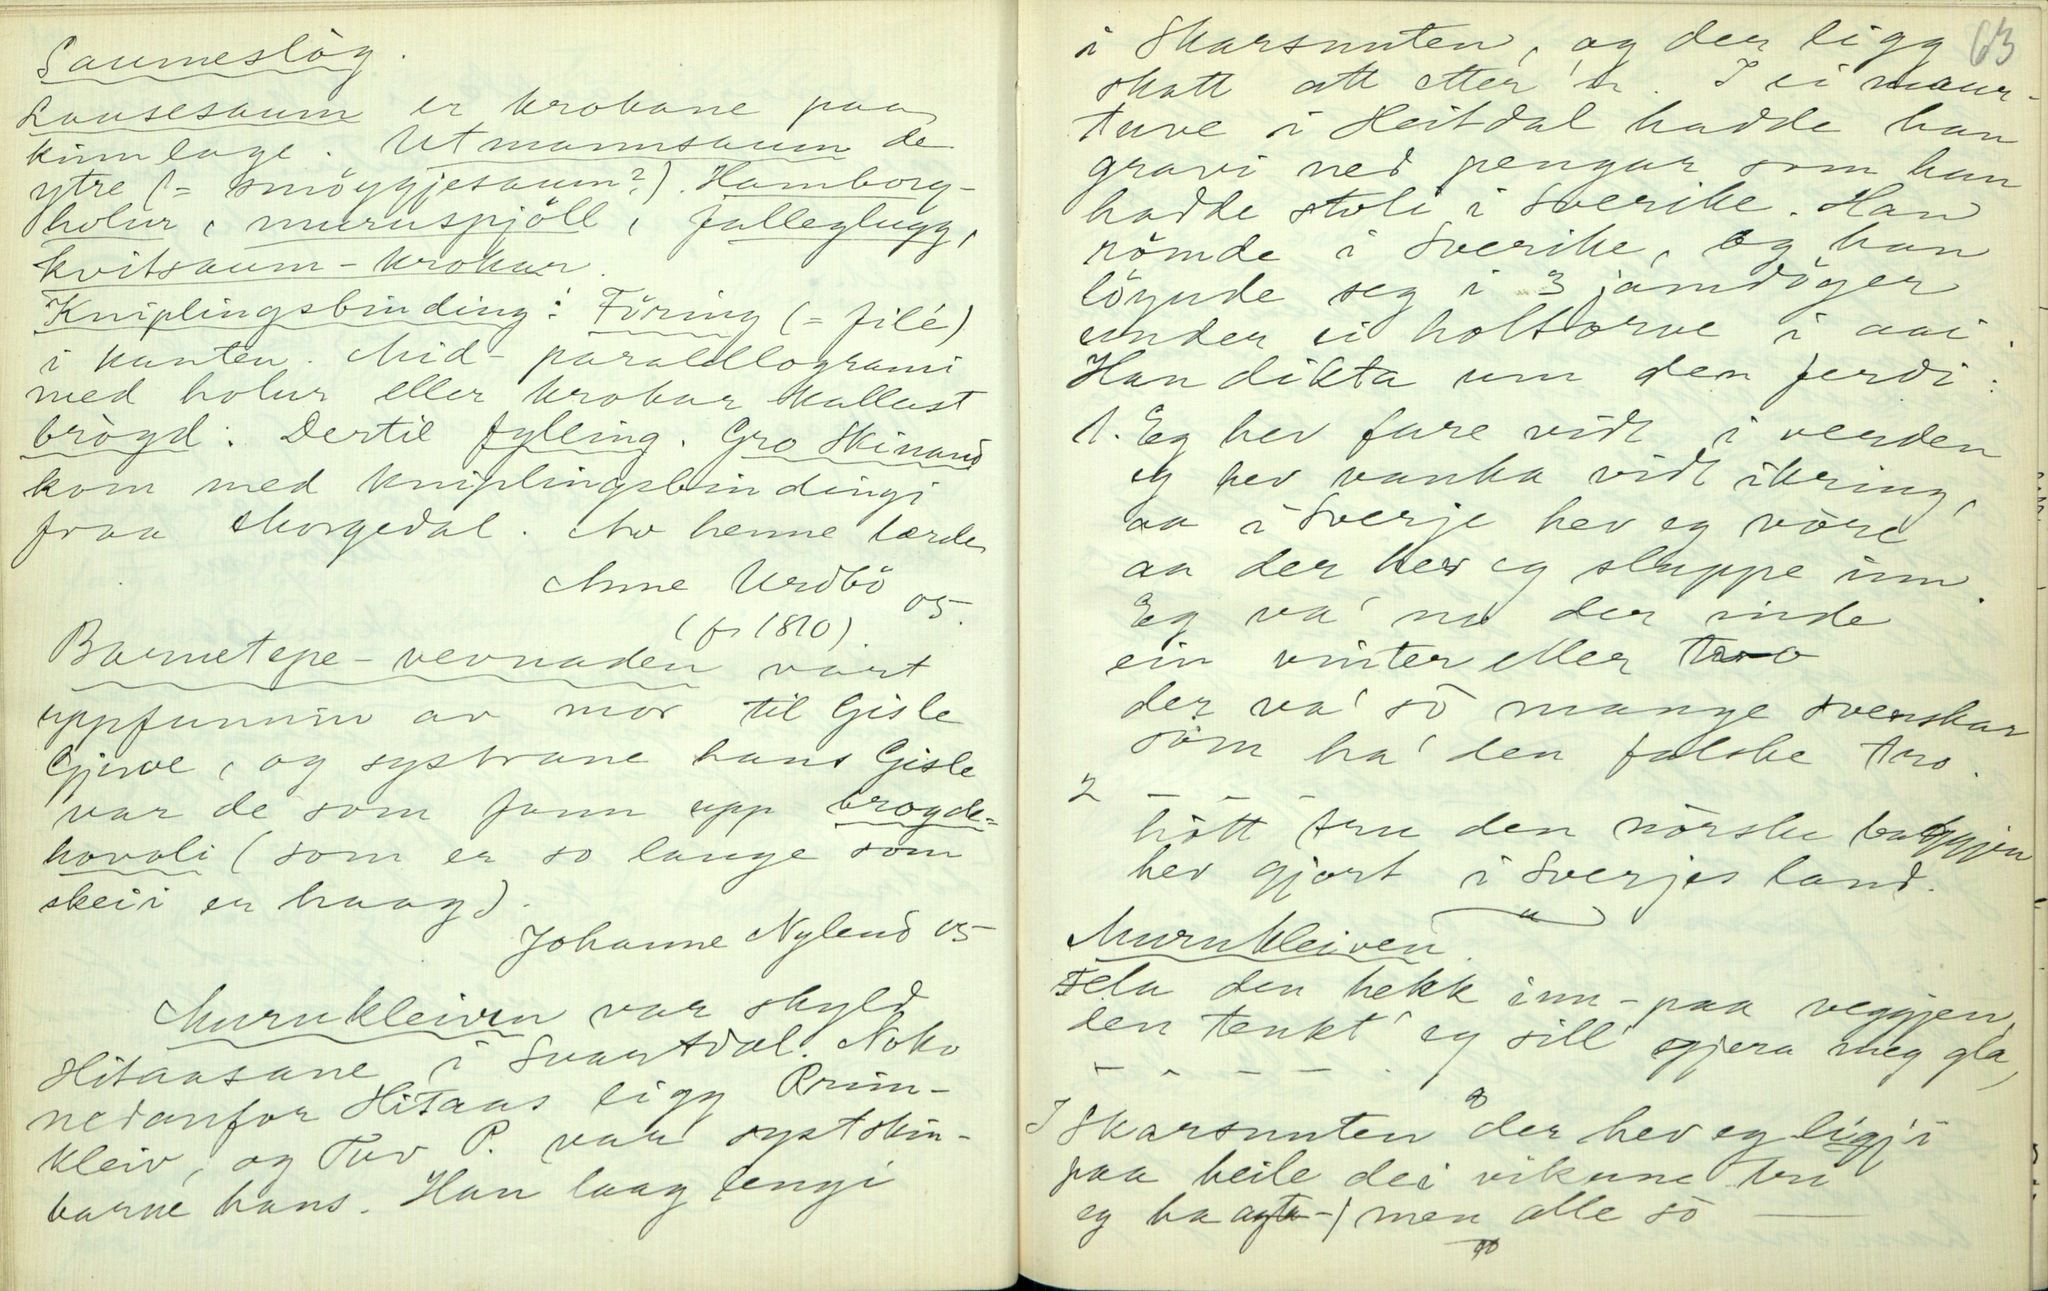 Saumeslög.
Lousesaum er krokane paa
kinnlage. Utmannsaum de
ytre (= smöygjesaum?). Hamborg-
holur, muruspjöll, falleglugg,
kvitsaum-krokar.
Kniplingsbinding: Föring (= filé)
i kanten. Mid-paralellogrami
med holur eller krokar kallast
brögd. Dertil fylling. Gro Skinand
kom med kniplingsbindingi
fraa Morgedal. Av henne lærde
Anne Urdbö 05.
(fr 1810)
Barnetepe-vevnaden vart
uppfunnin av mor til Gisle
Gjerve, og systrane hans Gisle
var de som fann upp brogde-
hovoli (som er so lange som
skeii er haag).
Johanne Nylend 05
Murukleiven var skyld
Hitaasane i Svartdal. Noko
nedanfor Hitaas ligg Prim-
kleiv, og Tuv P. var systskin-
barne hans. Han laag lengi
63
i Skarsnuten, og der ligg
skatt att etter 'n. I ei maur-
tuve i Heitdal hadde han
gravi ned pengar som han
hadde stoli i Sverike. Han
römde i Sverike, og han
löynde seg i 3 jamdöger
under ei holtorve i aai.
Han dikta um den ferdi:
1. Eg hev fare vidt i verden
eg hev vanka vidt ikring,
aa i Sverje hev eg vöre
aa der hev eg sluppe inn.
Eg va' nu der inde
ein vinter eller two
der va' sö mange svenskar
söm ha' den falske tro.
2 – – –
hött tru den nörske baggjen
hev gjort i Sverjes land.
Murukleiven.
Fela den hekk inn-paa veggjen,
den tenkt' eg sill' gjera meg gla,
– – – – –.
I Skarsnuten der hev eg ligji
paa heile dei vikune tri
eg ha agta –) men alle sö —